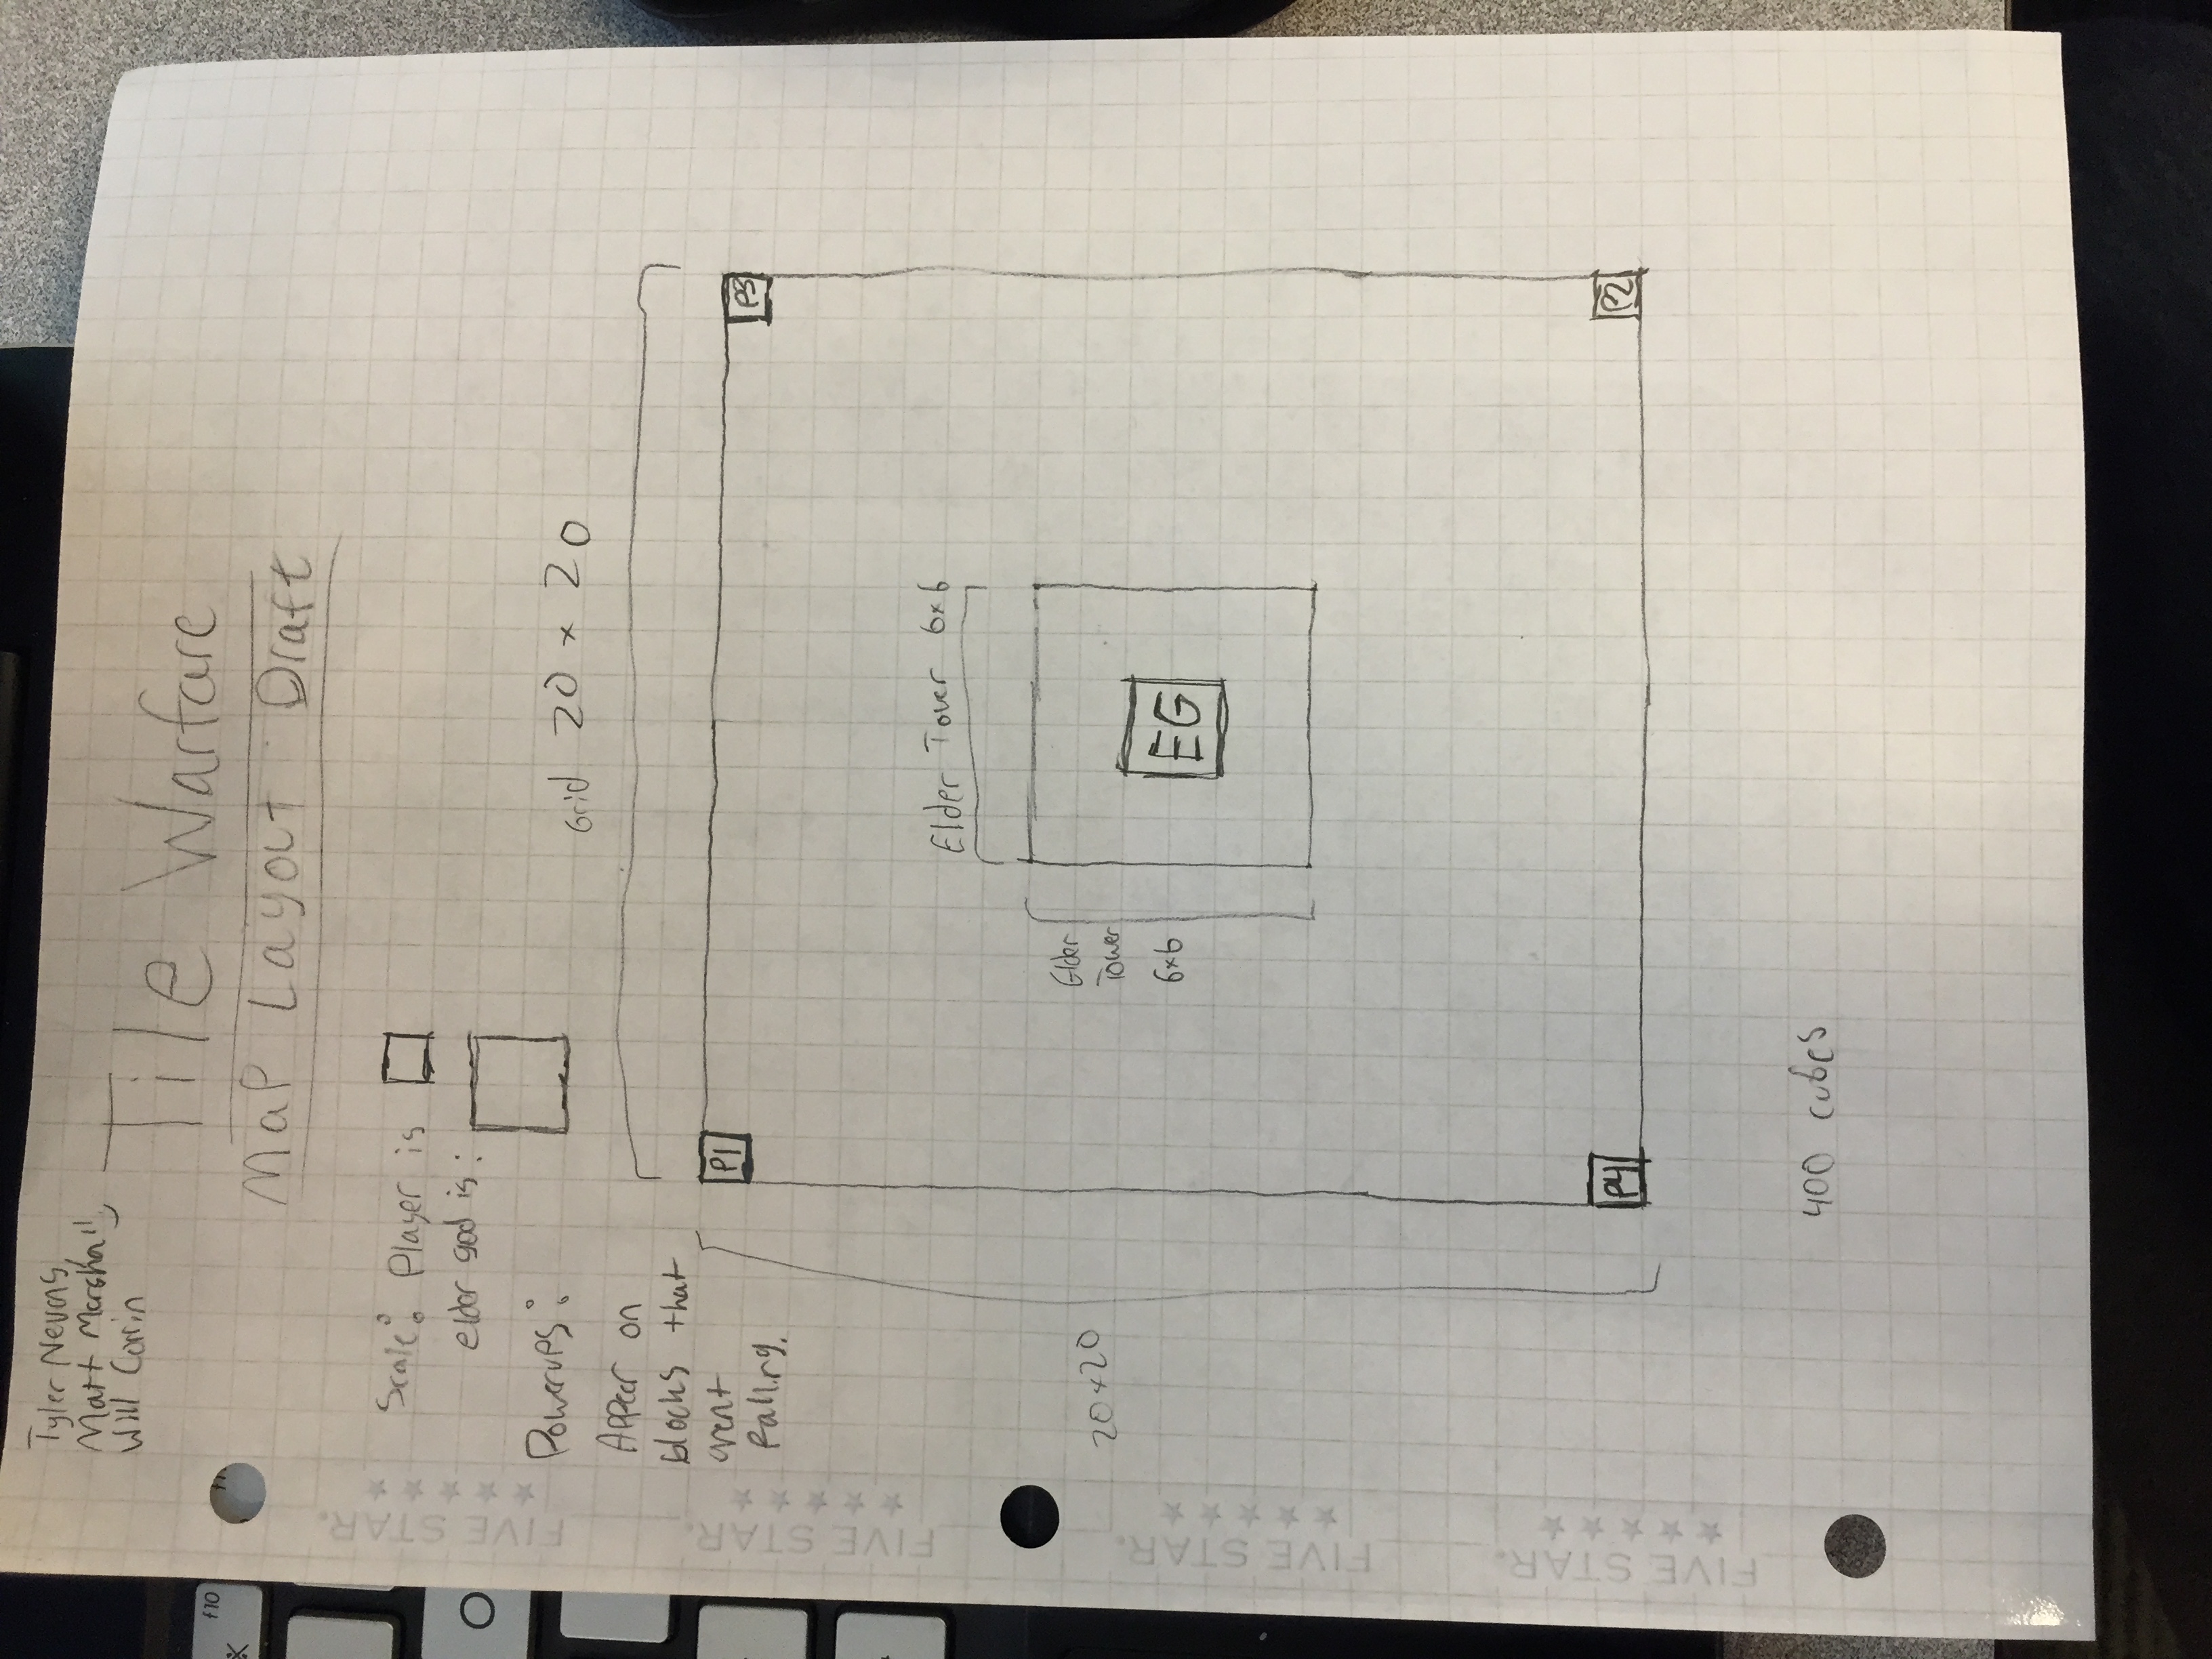 Tyler Nevons,
Matt Marshall,
Will Corrin
Tile Warfare
Map Layout Draft
Scale: Player is
elder god is:
Powerups:
Appear on
blocks that
arent
falling.
Grid 20 x 20
P1
P3
Elder Tower 6x6
Elder
Tower
6x6
EG
20x20
P4
P2
400 cubes
FIVE STAR.
FIVE STAR.
FIVE STAR.
FIVE STAR.
f10